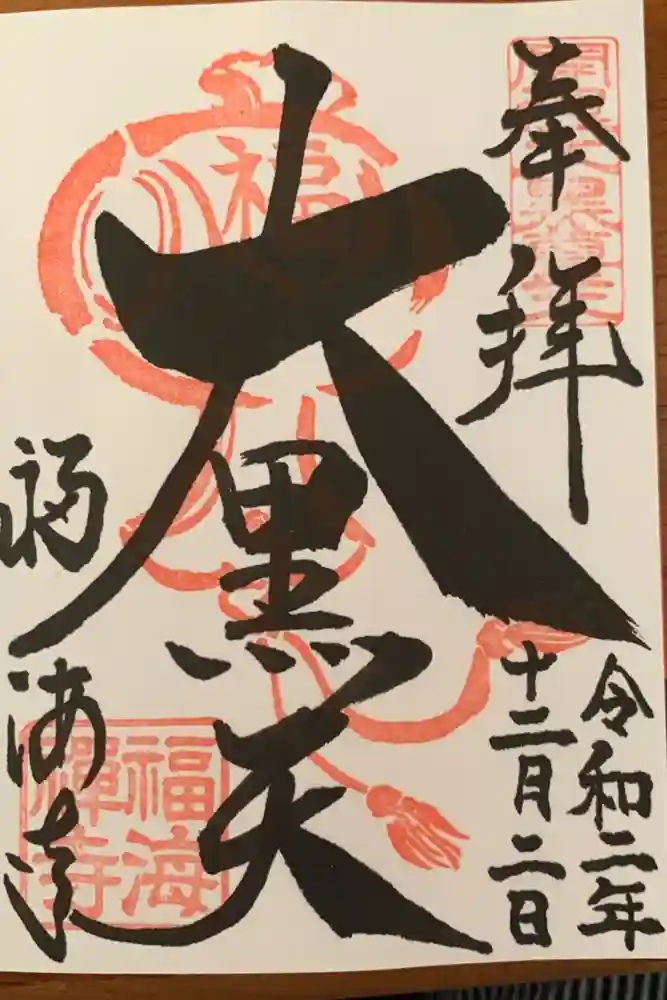 奉拝
令和二年
十二月二日
大黒天
福海寺
福
福海
禪寺